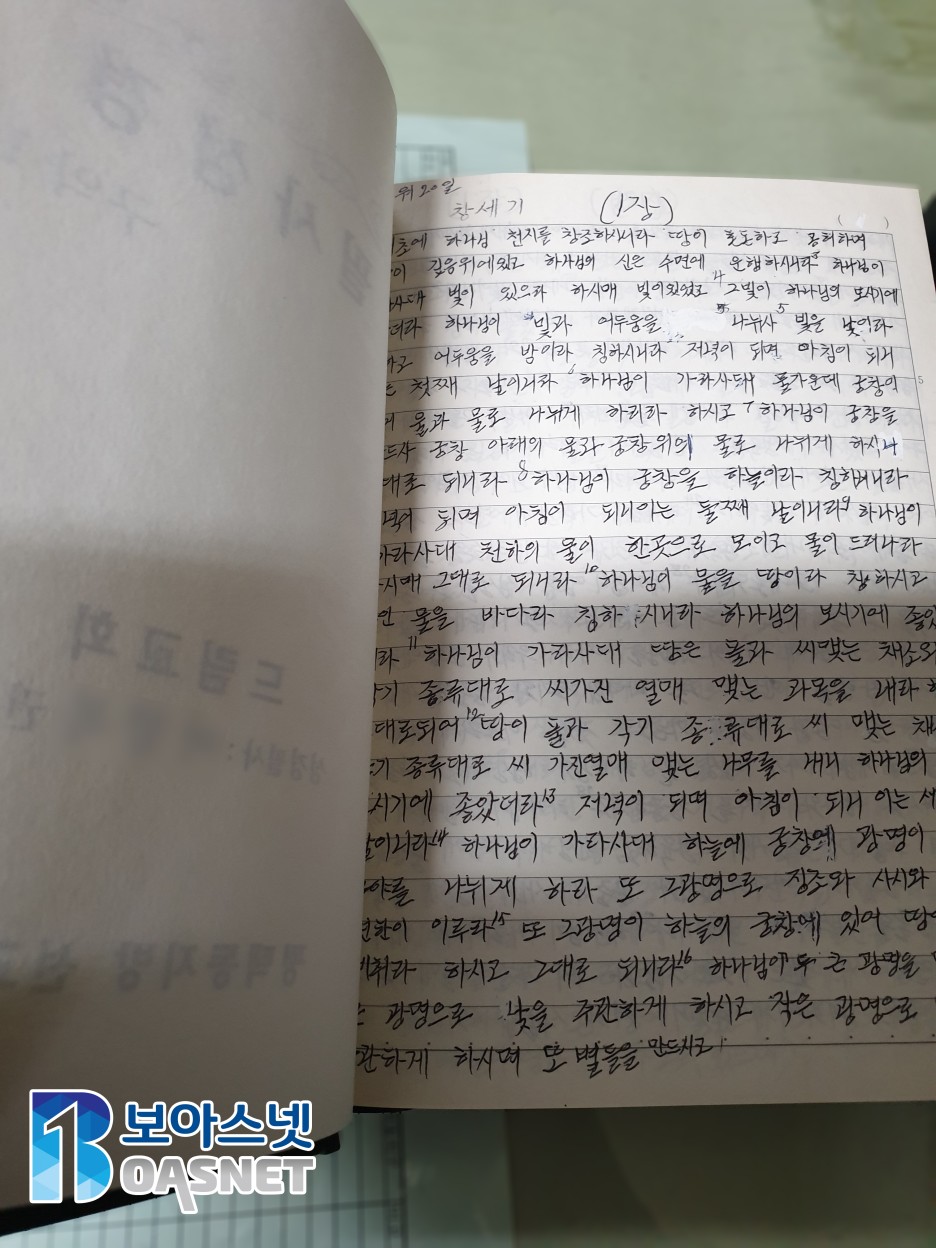 창세기 (1장)
초에 하나님 천지를 창조하시니라 땅이 혼돈하고 공허하며
이 깊음위에있고 하나님의 신은 수면에 운행하시니라 3 하나님이
사대 빛이 있으라 하시매 빛이있었고 4 그빛이 하나님의 보시기에
더라 하나님이 빛과 어두움을 나뉘사 5 빛을 낮이라
하고 어두움을 밤이라 칭하시니라 저녁이 되며 아침이 되니
는 첫째 날이니라 6 하나님이 가라사대 물가운데 궁창이
물과 물로 나뉘게 하리라 하시고 7 하나님이 궁창을
드사 궁창 아래의 물과 궁창위의 물로 나뉘게 하시니
대로 되니라 8 하나님이 궁창을 하늘이라 칭하니라
녁이 되며 아침이 되니이는 둘째 날이니라 9 하나님이
가라사대 천하의 물이 한곳으로 모이고 물이 드러나라
시매 그대로 되니라 10 하나님이 물을 땅이라 칭하시고
인 물을 바다라 칭하시니라 하나님의 보시기에 좋았
라 11 하나님이 가라사대 땅은 풀과 씨맺는 채소와
각기 종류대로 씨가진 열매 맺는 과목을 내라 하
대로되어 12 땅이 풀과 각기 종류대로 씨 맺는 채
기 종류대로 씨 가진열매 맺는 나무를 내니 하나님의
시기에 좋았더라 13 저녁이 되며 아침이 되니 이는 세
날이니라 14 하나님이 가라사대 하늘에 궁창에 광명이
야를 나뉘게 하라 또 그광명으로 징조와 사시와
연한이 이루라 15 또 그광명이 하늘의 궁창에 있어 땅
비취라 하시고 그대로 되니라 16 하나님이 두 큰 광명을
광명으로 낮을 주관하게 하시고 작은 광명으로
관하게 하시며 또 별들을 만드시고
드림교회
보아스넷
BOASNET